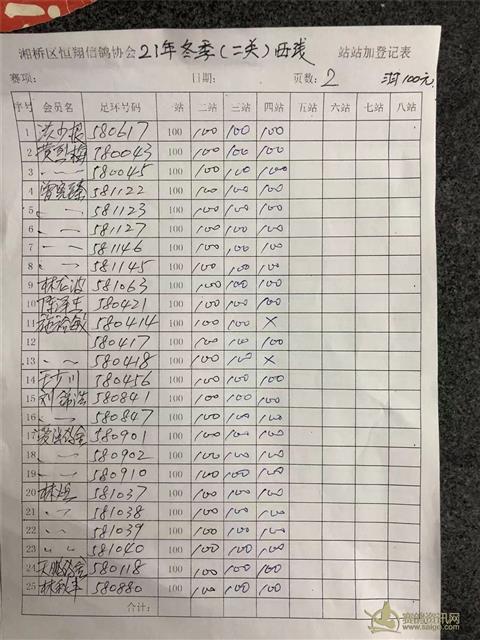 湘桥区恒翔信鸽协会 21年冬季(二关)西线 站站加登记表
赛项: 日期: 页数: 2 100元
序号 会员名 足环号码 一站 二站 三站 四站 五站 六站 七站 八站
1 580617 100 100 100 100
2 黄烈梅 580043 100 100 100 100
3 〃 580045 100 100 100 100
4 曾宪臻 581122 100 100 100 100
5 〃 581123 100 100 100 100
6 〃 581127 100 100 100 100
7 〃 581146 100 100 100 100
8 〃 581145 100 100 100 100
9 林龙波 581063 100 100 100 100
10 陈泽生 580421 100 100 100 100
11 580414 100 100 100 ×
12 580417 100 100 100 100
13 〃 580418 100 100 100 ×
14 580456 100 100 100 100
15 刘锦浩 580841 100 100 100 100
16 〃 580847 100 100 100 100
17 580901 100 100 100 100
18 〃 580902 100 100 100 100
19 〃 580910 100 100 100 100
20 林旭 581037 100 100 100 100
21 〃 581038 100 100 100 100
22 〃 581039 100 100 100 100
23 〃 581040 100 100 100 100
24 天鹏鸽舍 580118 100 100 100 100
25 580880 100 100 100 100
合计:
赛鸽资讯网
www.saige.com